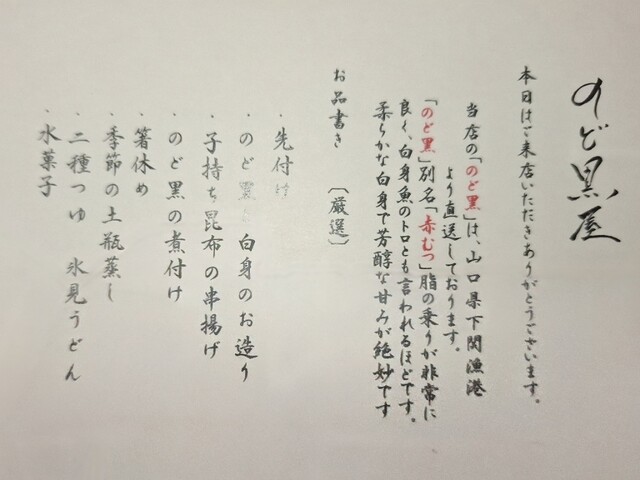 のど黒屋
本日はご来店いただきありがとうございます。
当店の「のど黒」は、山口県下関漁港
より直送しております。
「のど黒」別名「赤むつ」脂の乗りが非常に
良く、白身魚のトロとも言われるほどです。
柔らかな白身で芳醇な甘みが絶妙です
お品書き 〔厳選〕
・先付け
・のど黒と白身のお造り
・子持ち昆布の串揚げ
・のど黒の煮付け
・箸休め
・季節の土瓶蒸し
・二種つゆ 氷見うどん
・水菓子